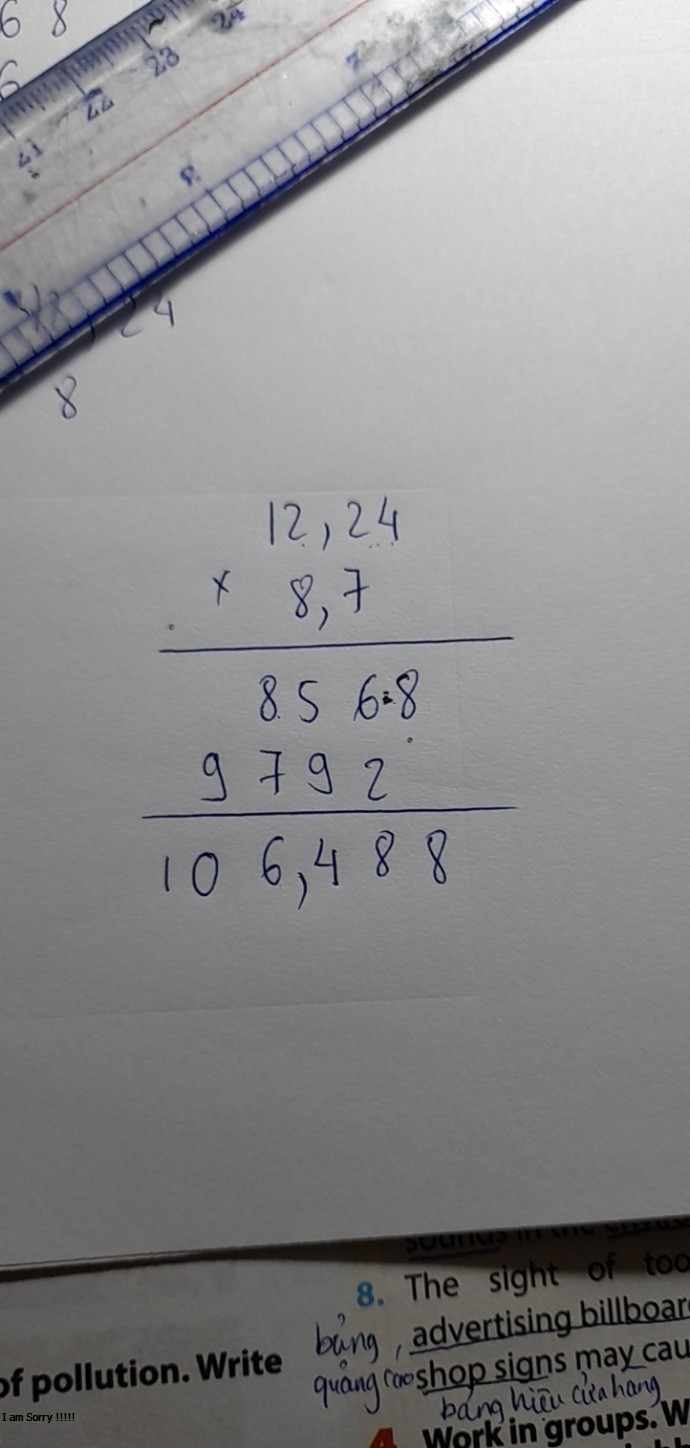 6 8
6
21 22 23 24
8 7
, 24
8
12,24
× 8,7
8568
9792
106,488
sounds in the
8. The sight of too
bảng , advertising billboar
quảng cáo shop signs may cau
bảng hiệu cửa hàng
of pollution. Write
4 Work in groups. W
I am Sorry !!!!!